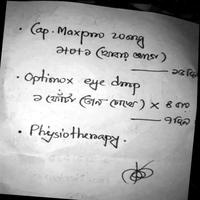 • Cap. Maxpro 20mg
১+০+১ (খাবার আগে)
• Optimox eye drop
১ ফোঁটা (ডান চোখে) ×
• Physiotherapy.